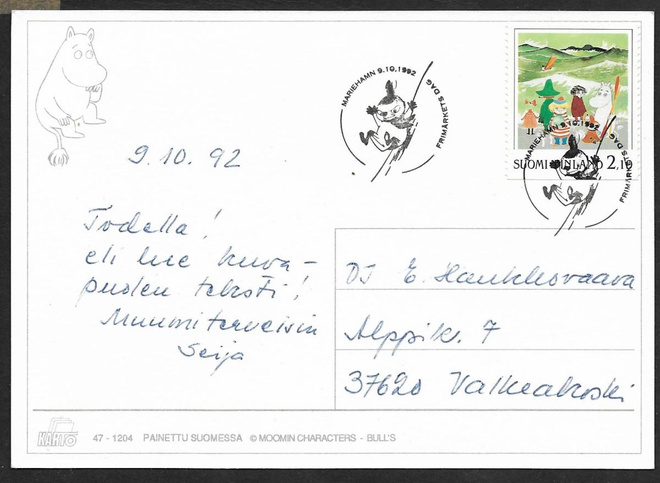 MARIEHAMN 9.10.1992
FRIMÄRKETS DAG
SUOMI FINLAND 2,10
MARIEHAMN 9.10.1992
FRIMÄRKETS DAG
9.10.92
Todella!
eli lue kuva-
puolen teksti!
Muumiterveisin
Seija
DI E. Haukkovaara
Alppik. 7
37620 Valkeakoski
KARTO
47 - 1204 PAINETTU SUOMESSA © MOOMIN CHARACTERS - BULL'S